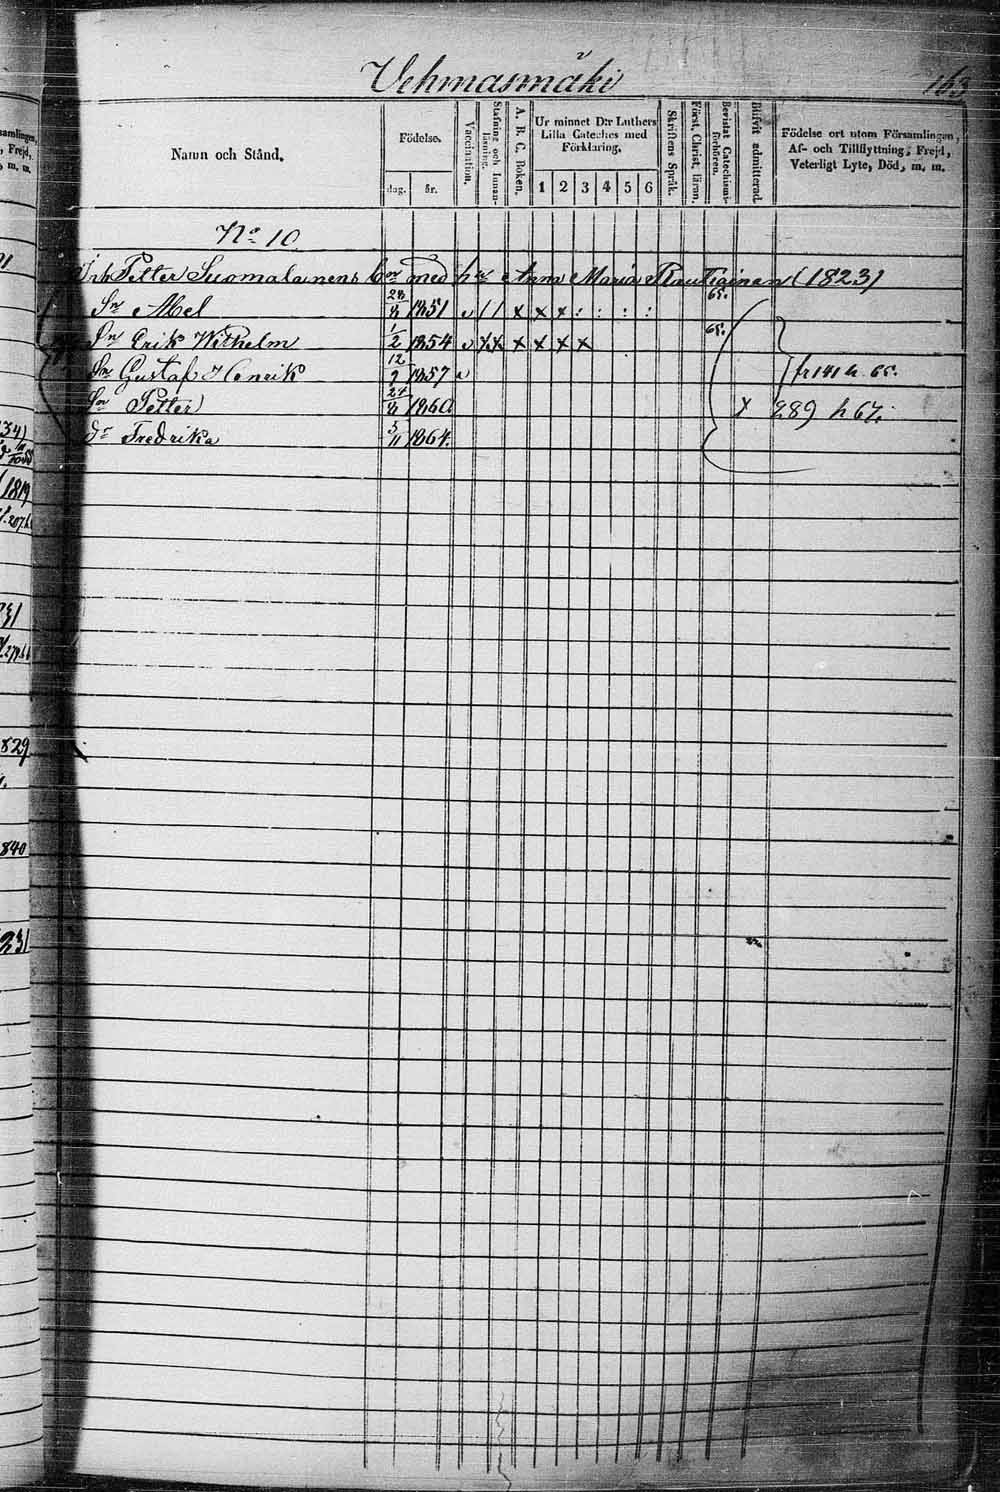 Vehmasmäki
163
Namn och Stånd.
Födelse.
dag.
år.
Vaccination.
Stafning och Innanläsning.
A. B. C. Boken.
Ur minnet D:r Luthers Lilla Cateches med Förklaring.
1 2 3 4 5 6
Skriftens Språk.
Först. Christ. läran.
Bevistat Catechismiförhören.
Blifvit admitterad.
Födelse ort utom Församlingen,
Af- och Tillflyttning, Frejd,
Veterligt Lyte, Död, m. m.
No 10
Petter Suomalainens med Anna Maria Rautiainen (1823)
Sn Abel 28/8 1851 65.
Sn Erik Wilhelm 1/2 1854 x x x x x x 65.
Sn Gustaf Henrik 12 1857 fr 141 h. 65.
Sn Petter 24/8 1860 x 289 h 67.
Dr Fredrika 5/11 1864.
samlingen,
, Frejd,
m. m.
34)
(1819
829
840
231